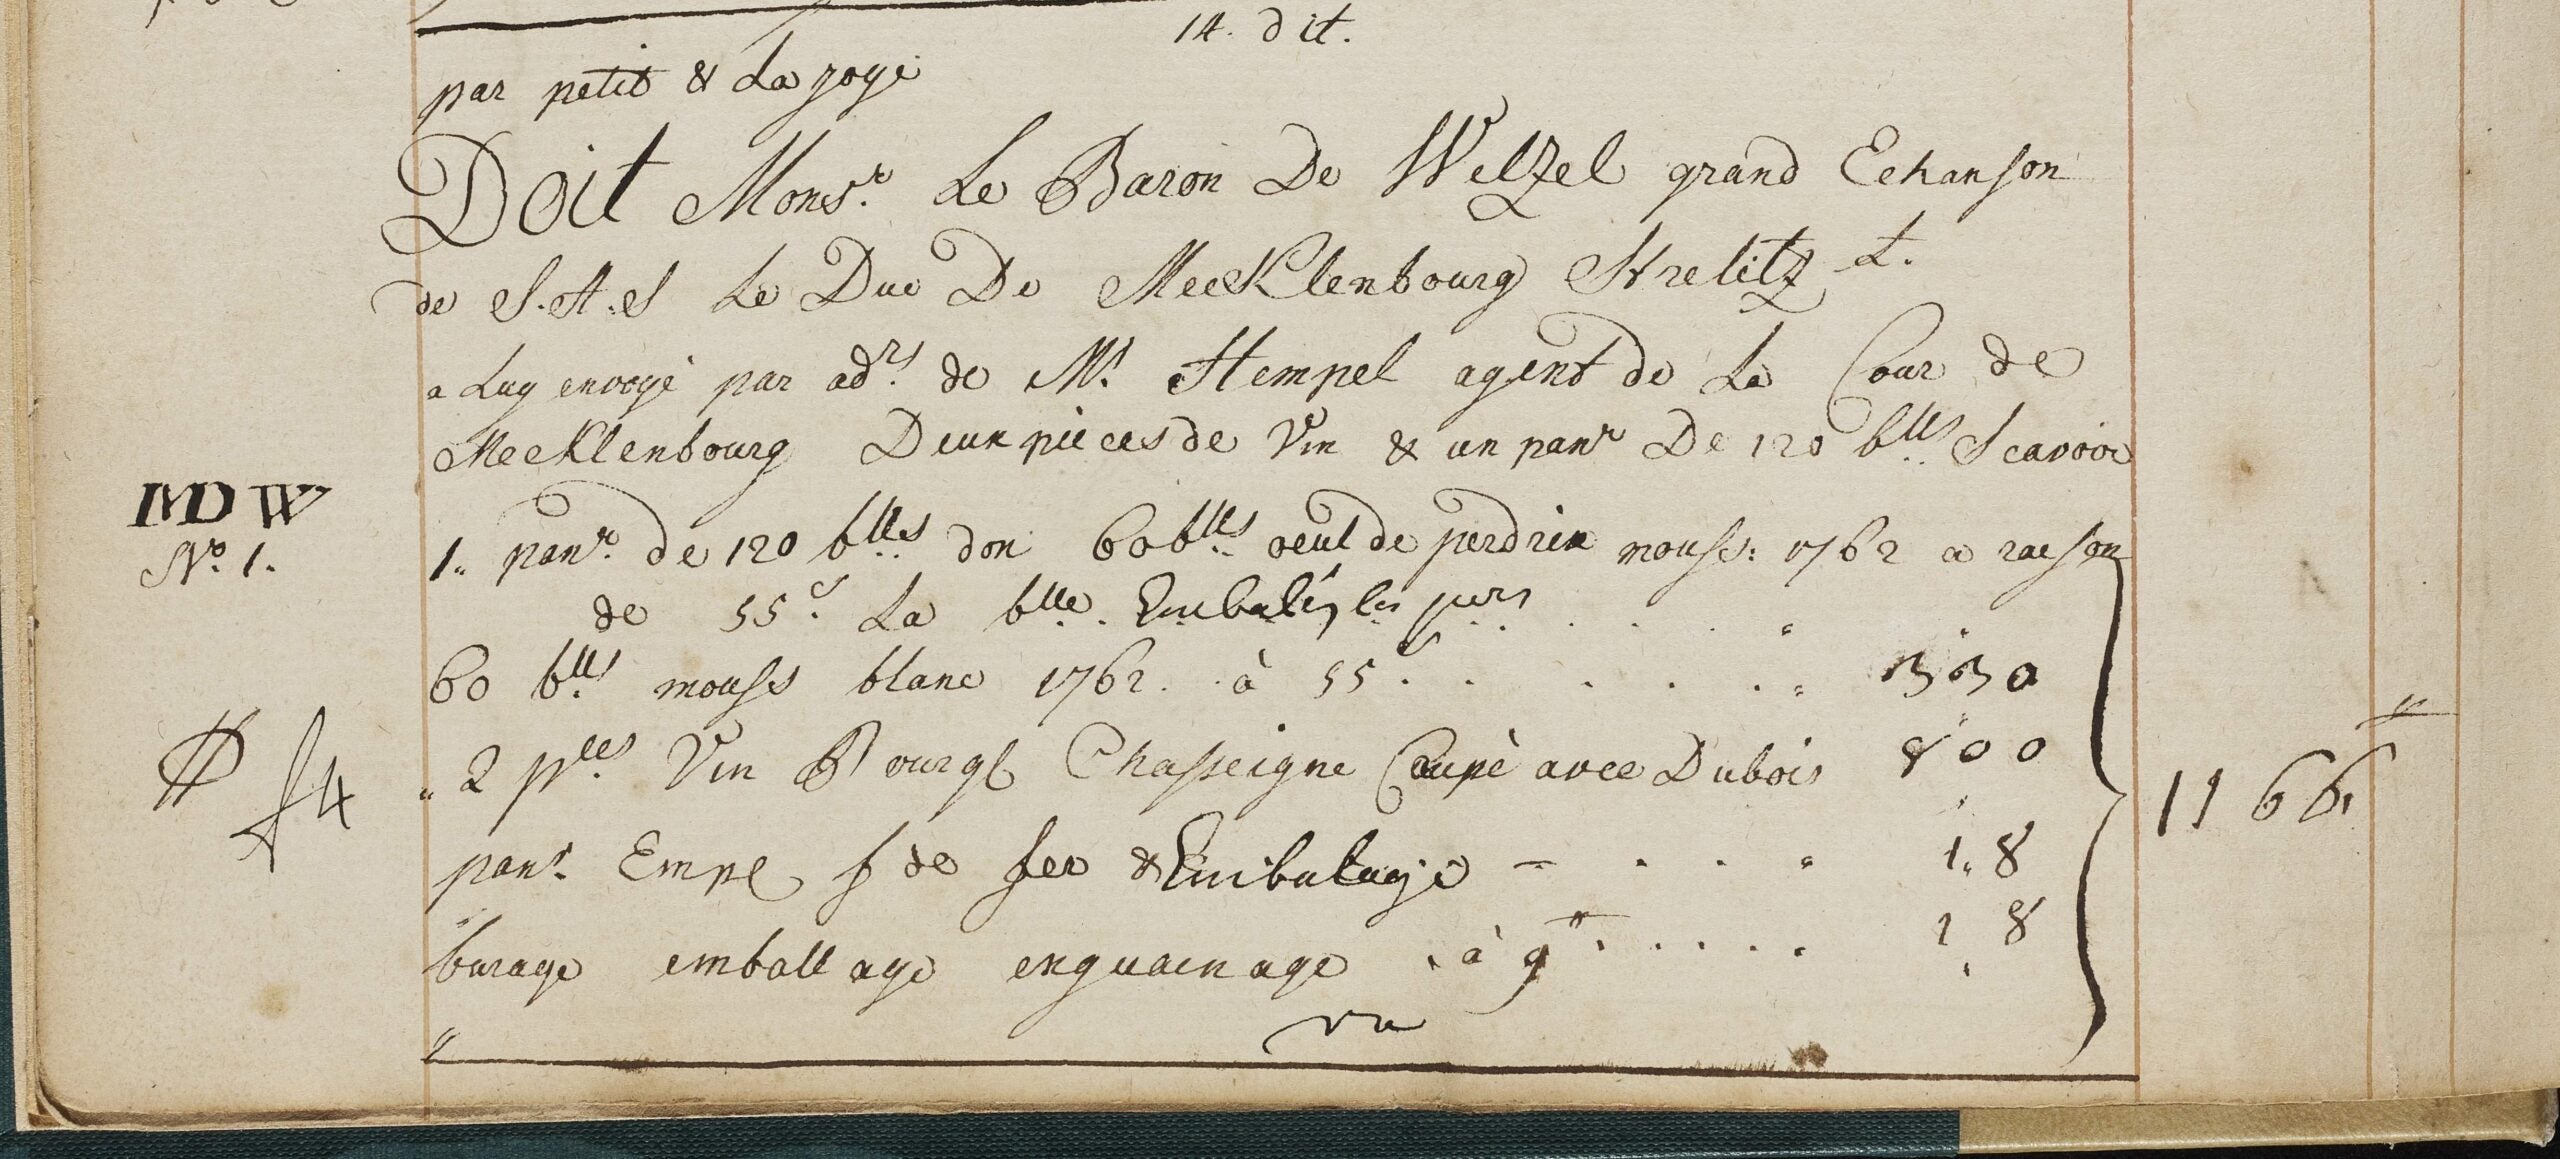 14. dit.
par petit & La joye
Doit Mons.r Le Baron De Welzel grand Echanson
de S.A.S Le Duc De MecKlenbourg Strelitz L.
a Luy envoyé par adrs. de Mr. Hempel agent de La Cour de
MecKlenbourg Deux pieces de Vin & un panr De 120 blles Scavoir
MDW
No. 1.
1„ panr. de 120 blles don 60 blles oeul de perdrix mouss: 1762 a raeson
de 55 s. La blle. Embalés
60 blles mouss blanc 1762. à 55 s. 330
f4
„ 2 plles Vin Bourg Chasseigne Coupé avec Dubois 800
1166
panr. Empl f de fer & Embalage 18
barage emballage enguainage à 9 18